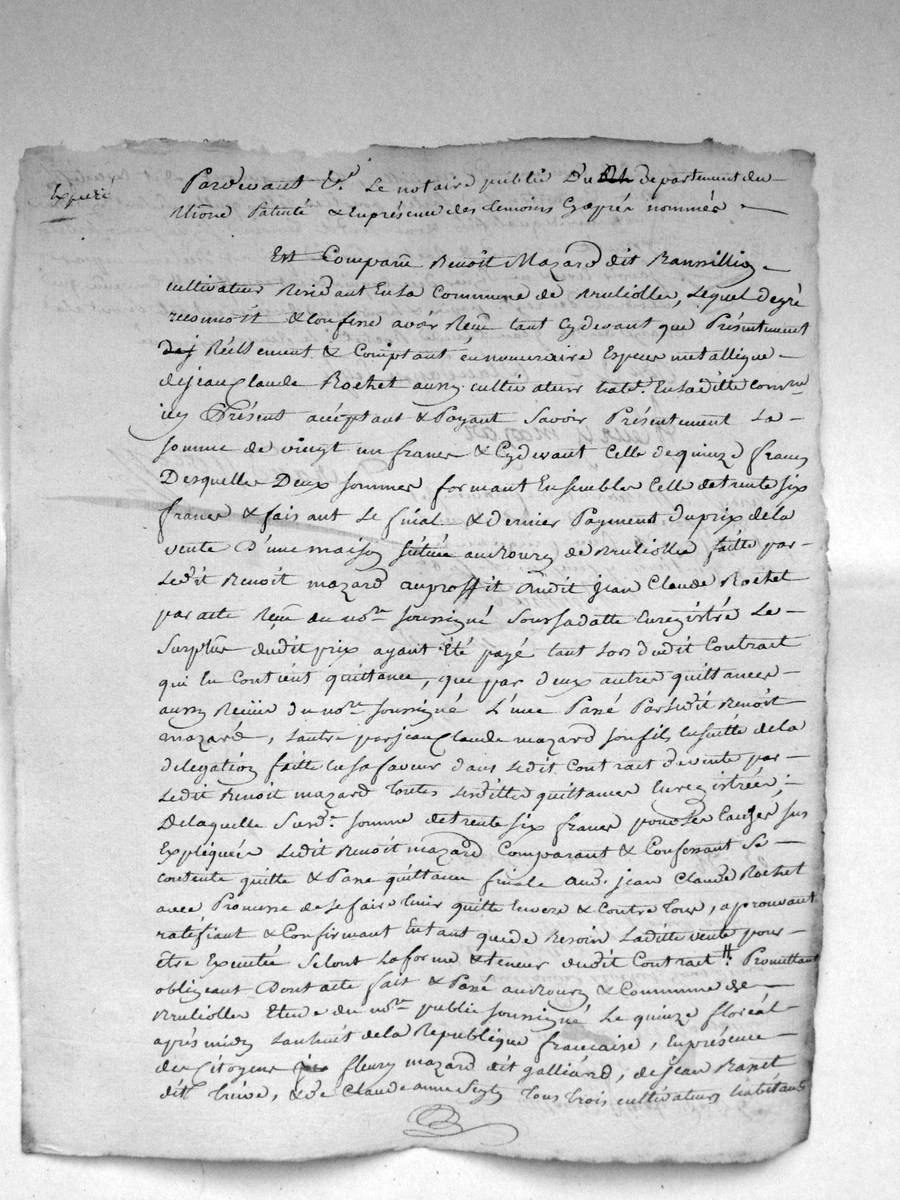 Expédié
Pardevant Le notaire public Du departement du
Rhône Patenté & en présence des temoins Cyaprés nommés
Est Comparu Benoît Mazard dit
cultivateur Residant En la Commune de Brullioles, Lequel de gré
reconnoit & Confesse avoir Reçu tant Cydevant que Présentement
Réellement & Comptant en numeraire Especes metallique
de jean Claude Rochet aussy cultivateur habt. En laditte comune
icy Présent acceptant & Payant Savoir Présentement La
somme de vingt un francs & Cydevant Celle de quinze francs
Desquelles Deux sommes formant Ensembles Celle de trente six
francs & faisant Le final & Dernier Payement du prix de la
vente D'une maison située au Bourg de Brullioles faitte par
Ledit Benoit mazard au proffit dudit Jean Claude Rochet
par acte Reçu du nore. soussigné Sous sa datte Enregistré Le
Surplus dudit prix ayant été payé tant Lors dudit Contract
qui En Contient quittance, que par deux autres quittances
aussy Reçues du nore. soussigné L'une Passé Par ledit Benoit
mazard, Lautre par jean Claude mazard son fils En suitte de la
delegation faitte En sa faveur dans Ledit Contract de vente par
Ledit Benoit mazard Toutes Lesdittes quittances Enregistrées;
De laquelle Susd. somme de trente six francs pour les Causes sus
Expliquées Ledit Benoit mazard Comparant & Confessant Se
contente quitte & Passe quittance finale aud. jean Claude Rochet
avec Promesse de le faire tenir quitte Envers & Contre Tous, aprouvant
ratifiant & Confirmant En tant que de Besoin Laditte vente pour
être Executée Selont La forme & teneur dudit Contract. Promettant
obligeant Dont acte fait & Passé au Bourg & Commune de
Brullioles Etude du nore. public soussigné Le quinze floréal
après midy Lan huit de la Republique francaise, En présence
des Citoyens fleury mazard dit galliard, de jean
dit & de Claude anne Tous trois cultivateurs habitans